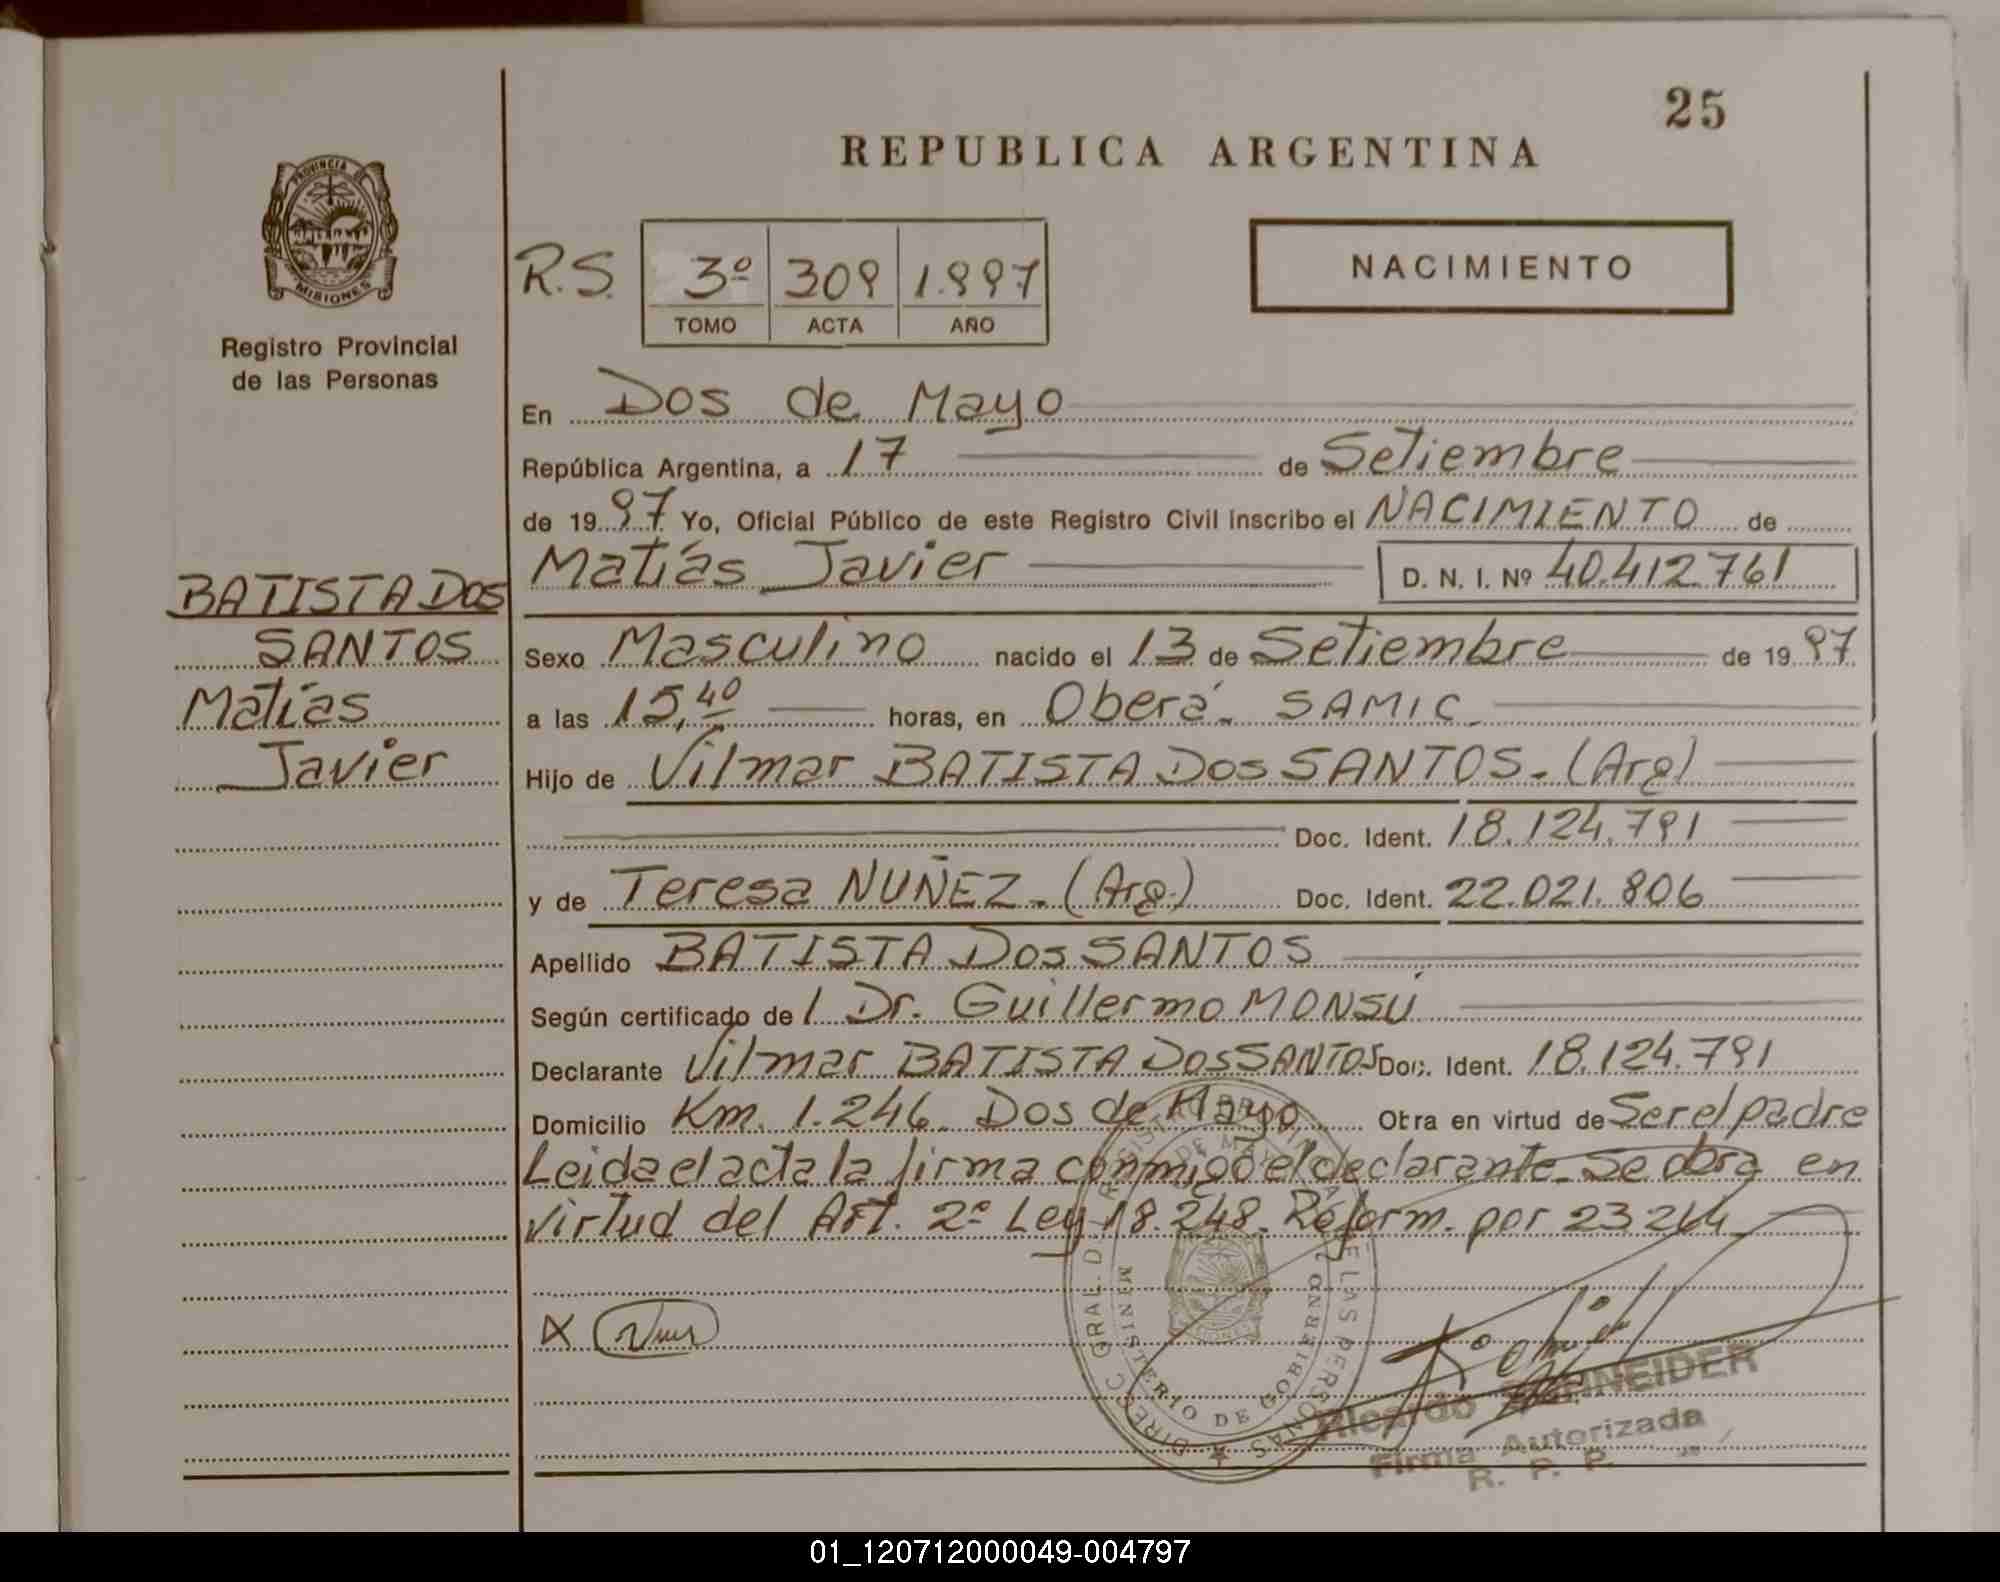 25
REPUBLICA ARGENTINA
PROVINCIA DE
MISIONES
Registro Provincial
de las Personas
R.S. 3º 309 1.997
TOMO ACTA AÑO
NACIMIENTO
En Dos de Mayo
República Argentina, a 17 de Setiembre
de 1997 Yo, Oficial Público de este Registro Civil inscribo el NACIMIENTO de
Matías Javier D. N. I. Nº 40.412.761
BATISTA DOS
SANTOS
Matías
Javier
Sexo Masculino nacido el 13 de Setiembre de 1997
a las 15,40 horas, en Oberá. SAMIC.
Hijo de Vilmar BATISTA Dos SANTOS.(Arg)
Doc. Ident. 18.124.791
y de Teresa NUÑEZ.(Arg.) Doc. Ident. 22.021.806
Apellido BATISTA Dos SANTOS
Según certificado de l Dr. Guillermo MONSÚ
Declarante Vilmar BATISTA Dos SANTOS Doc. Ident. 18.124.791
Domicilio Km. 1.246. Dos de Mayo Obra en virtud de Ser el padre
Leida el acta la firma conmigo el declarante. Se obra en
virtud del Art. 2º Ley 18.248. Reform. por 23264
DIRECC GRAL. DE REGISTRO PROVINCIAL DE LAS PERSONAS
DOS DE MAYO
MINISTERIO DE GOBIERNO
Ricardo SCHNEIDER
Firma Autorizada
R. P. P.
01_120712000049-004797